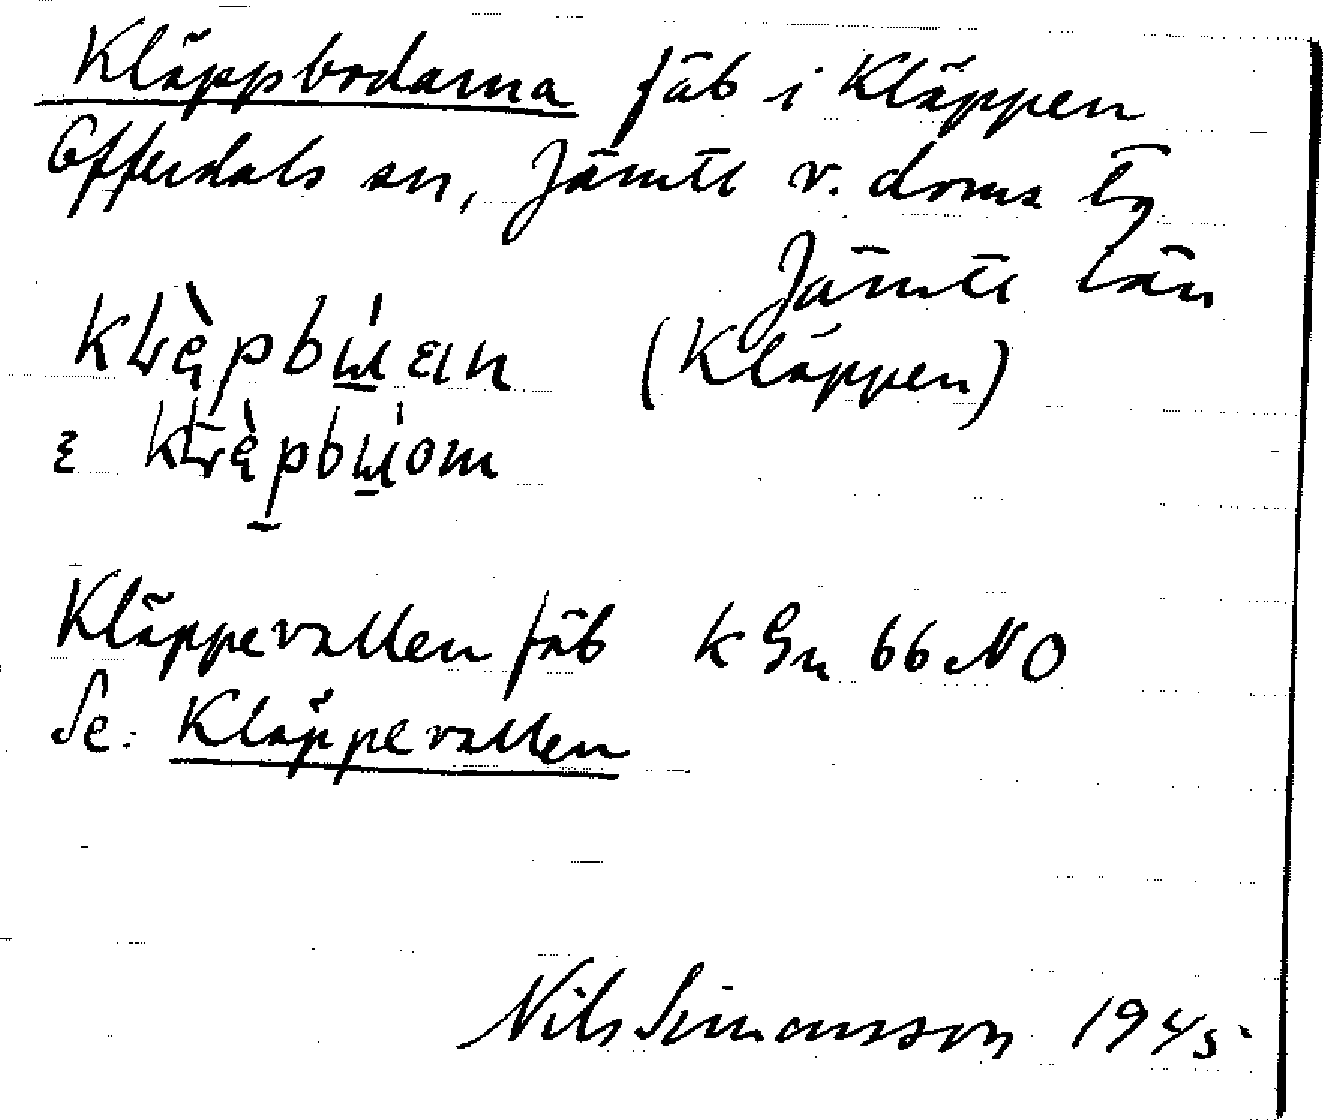 Kläppbodarna fäb i Kläppen
Offerdals sn, Jämtl v. doms tg
Jämtl län
(Kläppen)
Kläppevallen fäb k Gn 66 NO
Se: Kläppevallen
Nils Simonsson 1945